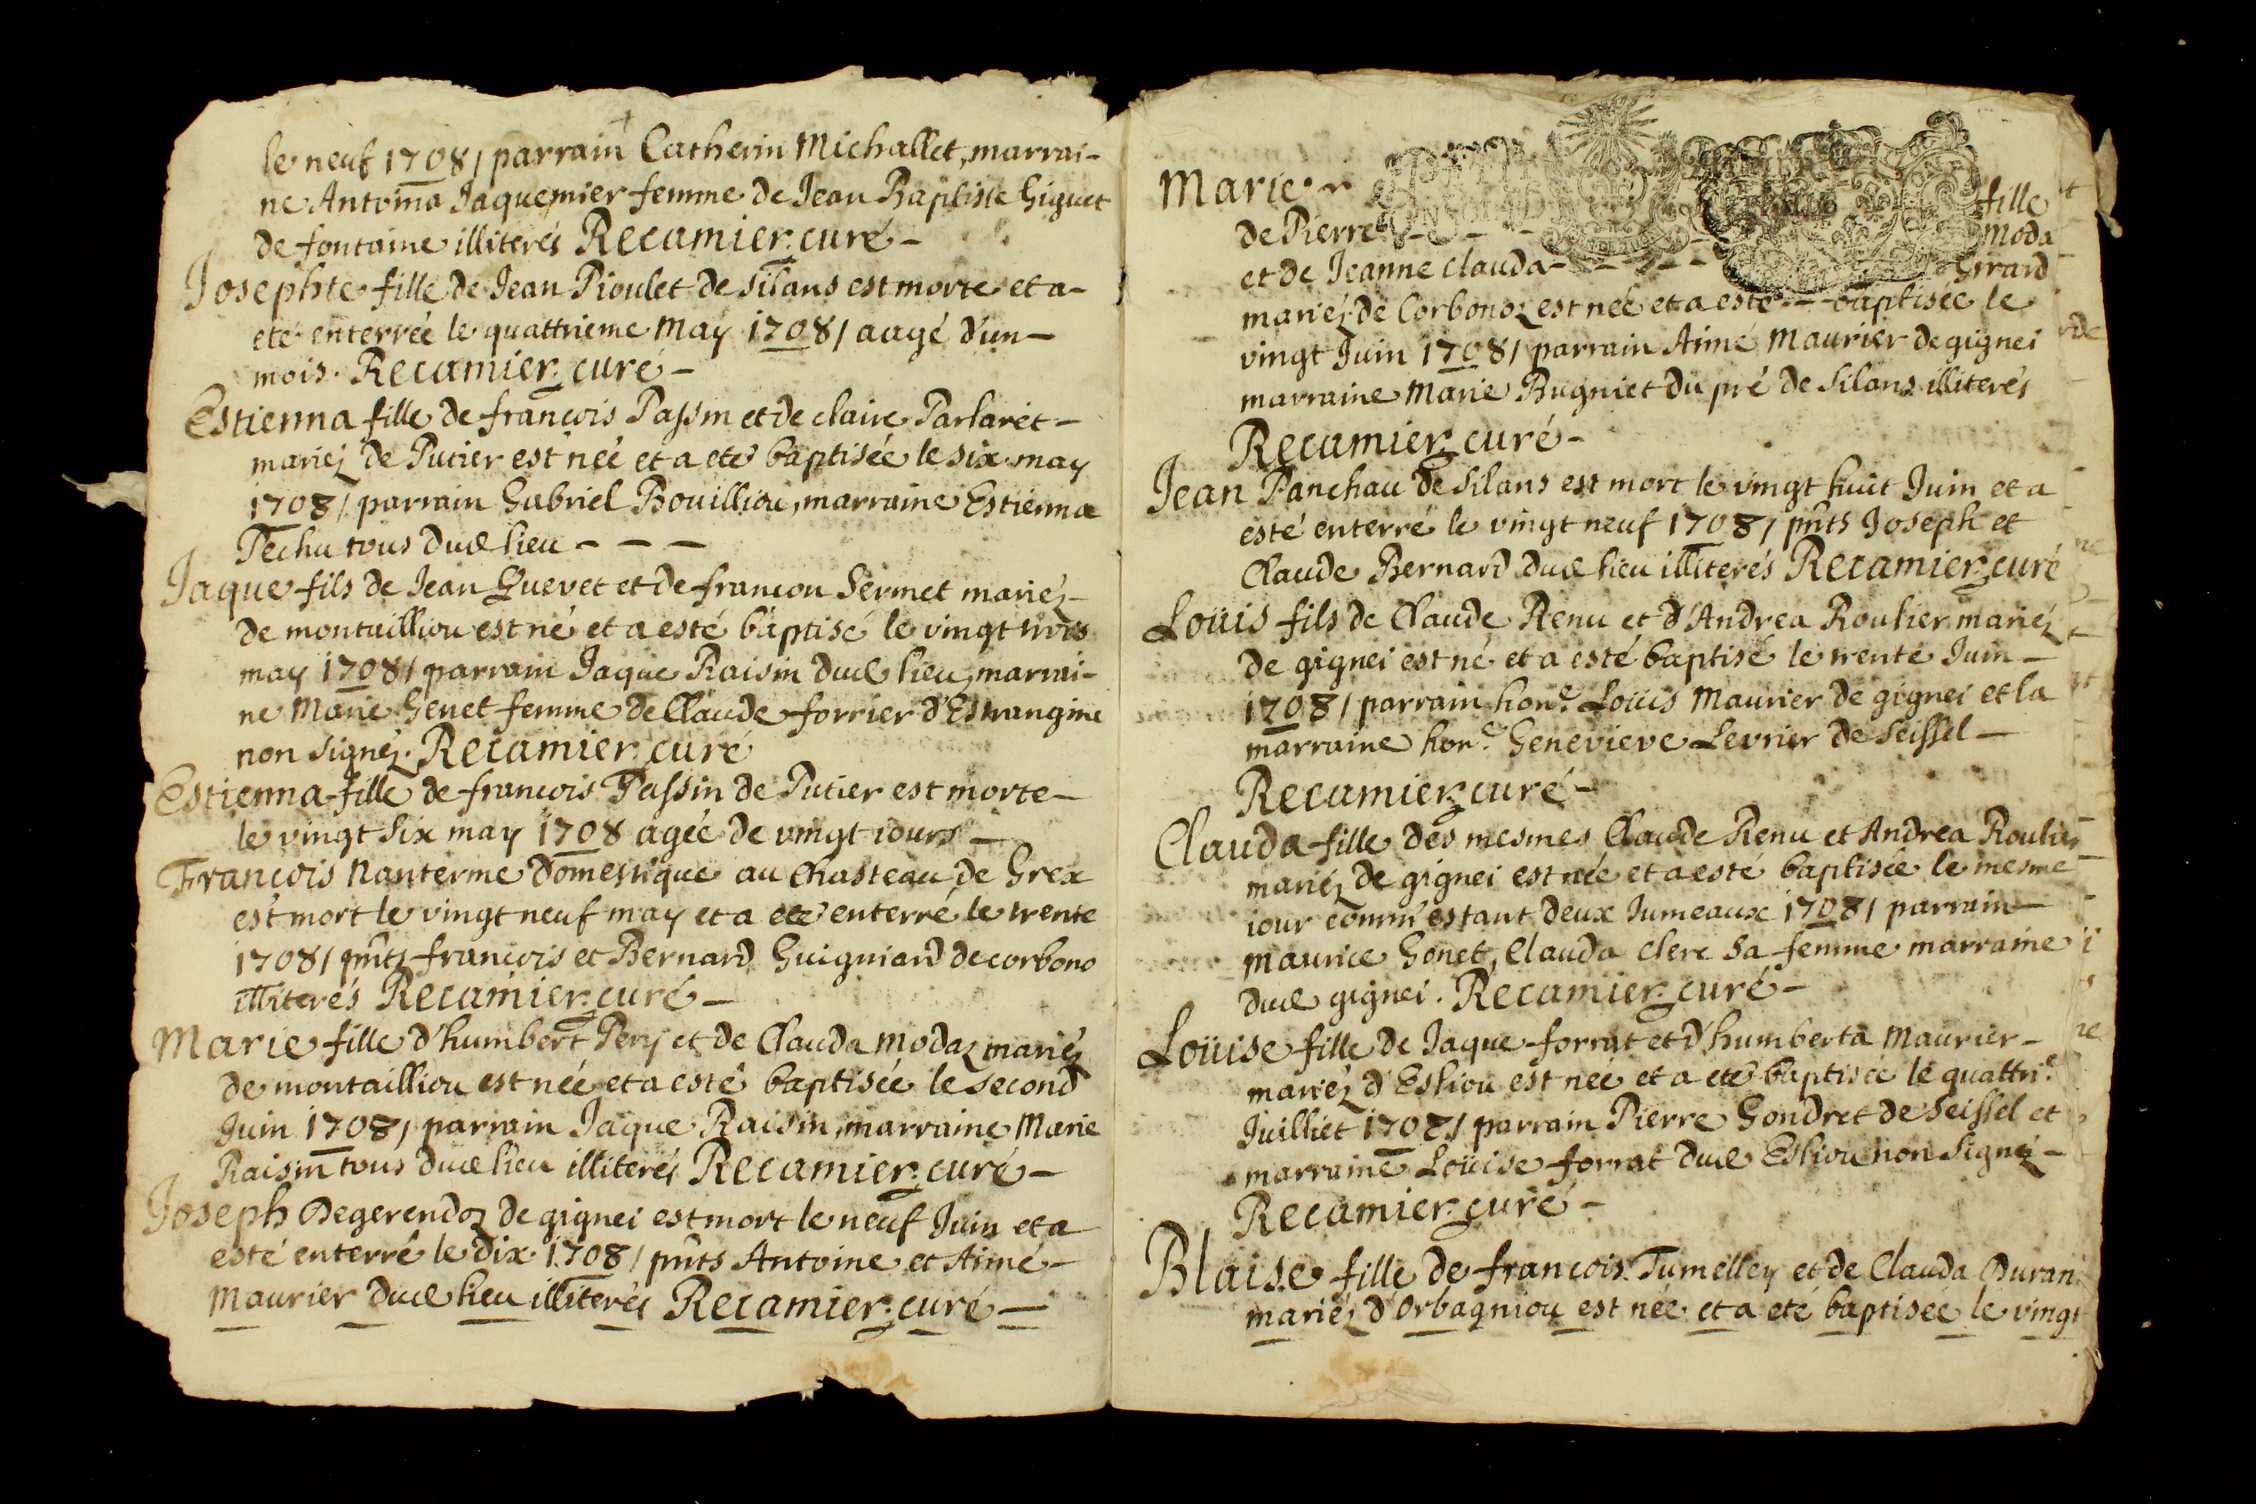 le neuf 1708 / parrain Catherin Michallet, marrai-
ne Antoina Jaquemier femme de Jean Baptiste Giguet
de fontaine illiterés Recamier curé -
Josephte fille de Jean Pioulet de silans est morte et a-
eté enterrée le quattrieme May 1708 / aagé d'un -
mois. Recamier curé -
Estienna fille de francois Passin et de claire Parlaret -
mariez de Putier est née et a eté baptisée le six may
1708 / parrain Gabriel Bouilliou, marraine Estienna
Techu tous dud lieu - - -
Jaque fils de Jean Quevet et de francon Sermet mariez -
de montailliou est né et a esté baptisé le vingt trois
may 1708 / parrain Jaque Raisin dud lieu, marrai-
ne Marie Genet femme de Claude forrier d'Estrangine
non signez. Recamier curé
Estienna fille de francois Passin de Putier est morte -
le vingt six may 1708 agée de vingt iours -
Francois Nanterme domestique au Chasteau de Grex
est mort le vingt neuf may et a eté enterré le trente
1708 / pnts francois et Bernard Guigniard de corbono
illiterés Recamier curé -
Marie fille d'humbert Pery et de Clauda Modaz mariez
de montailliou est née et a esté baptisée le second
Juin 1708 / parrain Jaque Raisin, marraine Marie
Raisin tous dud lieu illiterés Recamier curé -
Joseph Degerendoz de gignei est mort le neuf Juin et a
esté enterré le dix 1708 / pnts Antoine et Aimé -
Maurier dud lieu illiterés Recamier curé -
Marie fille
de Pierre - - - Moda
et de Jeanne Clauda - - - Girard
mariez de Corbonoz est née et a esté - - baptisée le
vingt Juin 1708 / parrain Aimé Maurier de gignei
marraine Marie Bugniet du pré de Silans illiterés
Recamier curé -
Jean Panchau de Silans est mort le vingt huit Juin et a
esté enterré le vingt neuf 1708 / pnts Joseph et
Claude Bernard dud lieu illiterés Recamier curé
Loüis fils de Claude Renu et d'Andrea Roulier mariez
de gignei est né et a esté baptisé le trente Juin -
1708 / parrain hone Loüis Maurier de gignei et la
marraine hone Genevieve Levrier de Seissel -
Recamier curé -
Clauda fille des mesmes Claude Renu et Andrea Roulier
mariez de gignei est née et a esté baptisée le mesme
iour comm' estant deux Jumeaux 1708 / parrain -
Maurice Gonet, Clauda Clerc sa femme marraine
dud gignei. Recamier curé -
Loüise fille de Jaque forrat et d'humberta Maurier -
mariez d'Esliou est née et a eté baptisée le quattrie
Juilliet 1708 / parrain Pierre Gondret de Seissel et
marraine Loüise forrat dud Esliou non signéz -
Recamier curé -
Blaise fille de francois Tumelley et de Clauda Duran
mariéz d'Orbagniou est née et a eté baptisée le vingt